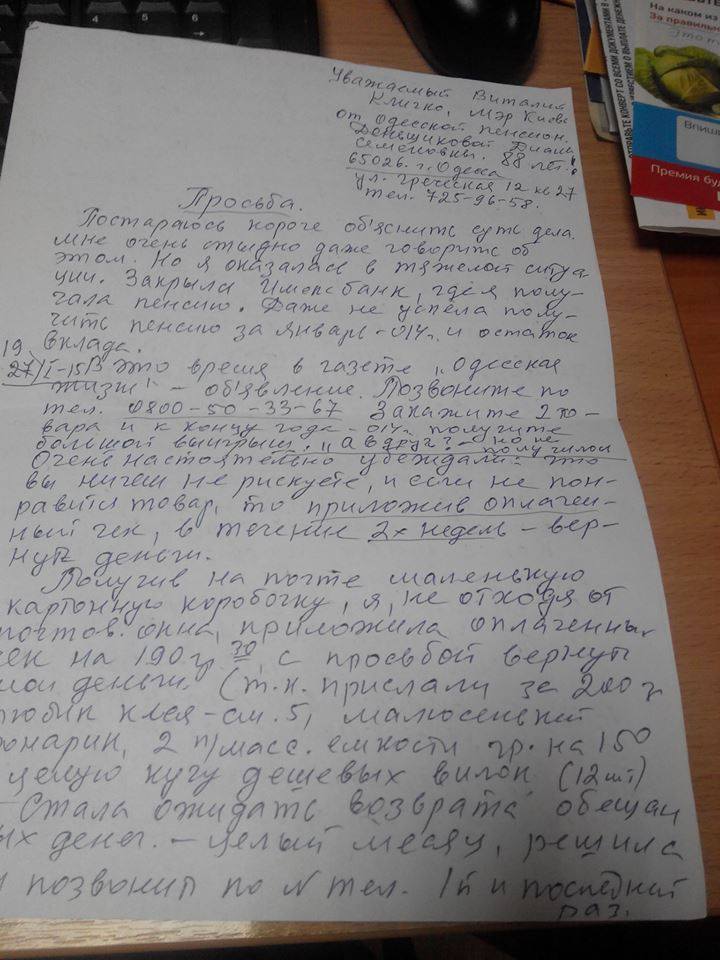 Уважаемый Виталий
Кличко, Мэр Киева
от Одесской пенсион.
Денщиковой Дианы
Семеновны. 88 лет!
65026. г. Одесса
ул. Греческая 12 кв 27
тел. 725-96-58.
Просьба.
Постараюсь короче об'яснить суть дела.
Мне очень стыдно даже говорить об
этом. Но я оказалась в тяжелой ситуа-
ции. Закрыли Имексбанк, где я полу-
чала пенсию. Даже не успела полу-
чить пенсию за январь-014г. и остаток
19 вклада.
27/I-15 В это время в газете „Одесская
жизнь" - об'явление. Позвоните по
тел. 0800-50-33-67 Закажите 2 то-
вара и к концу года -014г. получите
большой выигрыш. „а вдруг? - но не
получилои
Очень настоятельно убеждали: это
вы ничем не рискуете, и если не пон-
равится товар, то приложив оплачен-
ный чек, в течение 2х недель - вер-
нуть деньги.
Получив на почте маленькую
картонную коробочку, я, не отходя от
почтов. окна, приложила оплаченны
чек на 190 гр 30, с просьбой вернуть
мои деньги. (т.к. прислали за 200 г
тюбик клея-см. 5, малюсенький
фонарик, 2 п/масс. емкости гр. на 150
целую кучу дешевых вилок (12 шт)
- Стала ожидать возврата обещан
ых денег. - целый месяц, решила
и позвонил по N тел. 1й и последний
раз.
На каком из
За правильн
ОТПРАВЬТЕ КОНВЕРТ СО ВСЕМИ ДОКУМЕНТАМИ В
Впиши
Премия буд